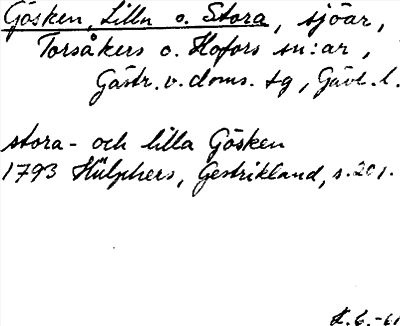 Gösken, Lilla o. Stora, sjöar,
Torsåkers o. Hofors sn:ar,
Gästr. v. doms. tg, Gävl. l.
stora- och lilla Gösken
1793 Hülphers, Gestrikland, s. 201.